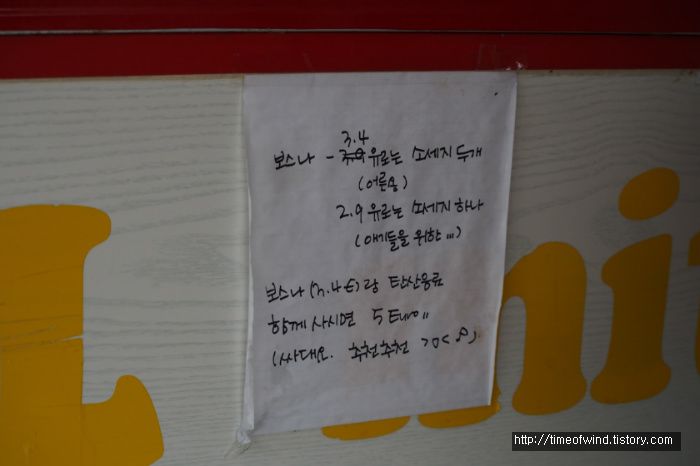 3.4
보스나 - 유로는 소세지 두개
(어른용)
2.9 유로는 소세지 하나
(애기들을 위한...)
보스나 (3.4€)랑 탄산음료
함께 사시면 5 Euro
(싸대요. 추천추천 >O<)
nit
http://timeofwind.tistory.com